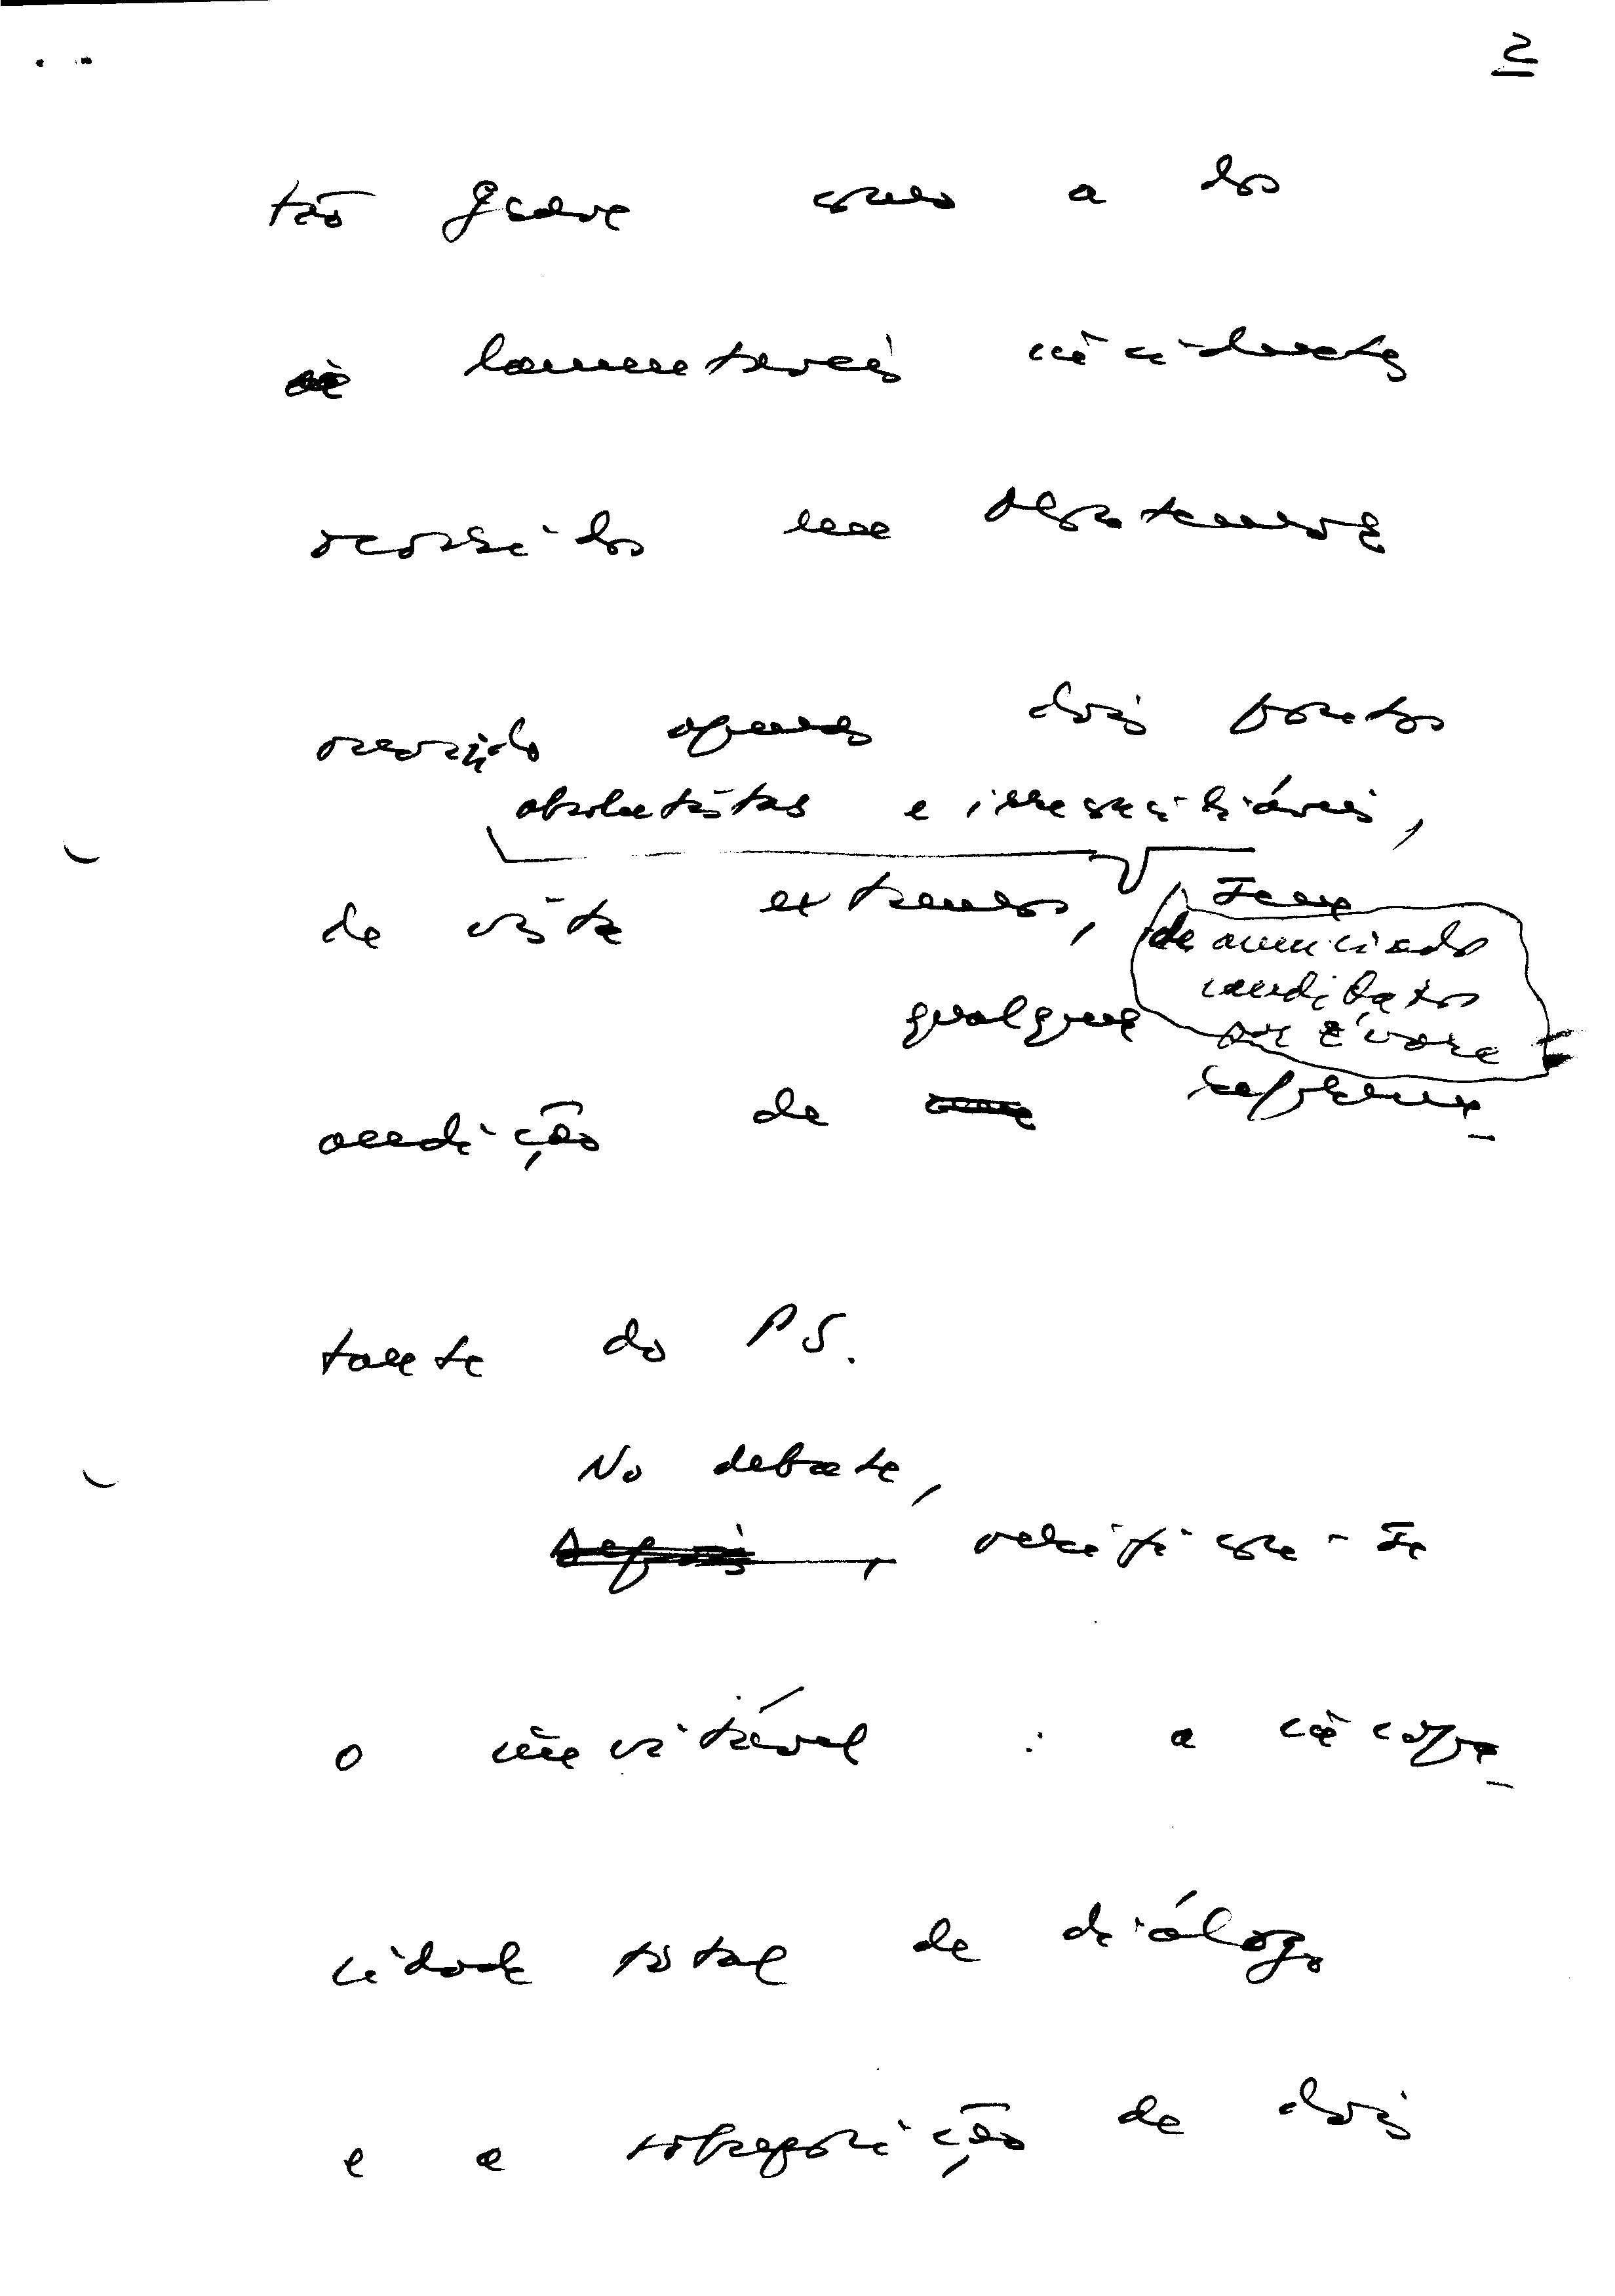 2
tão grave como a dos
lamentáveis incidentes
ocorridos em Montemor,
ouvindo apenas dois pontos
absolutistas e irreconciliáveis,
de vista extremos, sem
de anunciados
candidatos
por Évora
qualquer
audição de represen-
tante do PS.
No debate,
verificou-se
o inevitável : a incapa-
cidade total de diálogo
e a sobreposição de dois